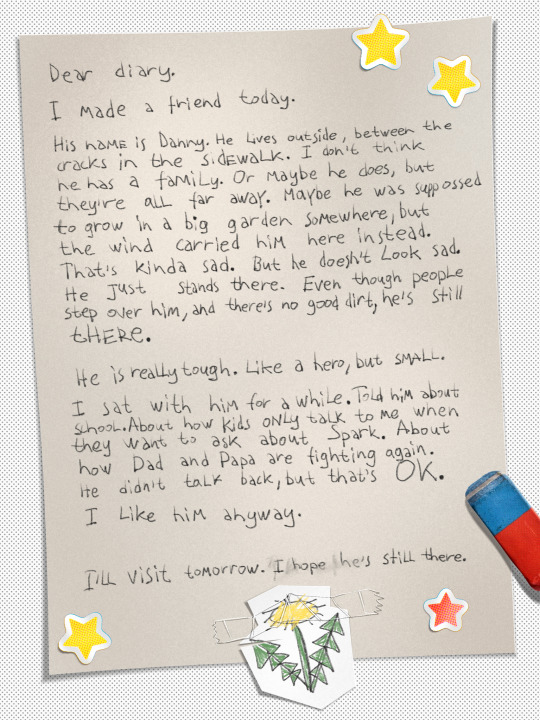 Dear diary.
I made a friend today.
His name is Danny. He lives outside, between the
cracks in the sidewalk. I don't think
he has a family. Or Maybe he does, but
they're all far away. Maybe he was suppossed
to grow in a big garden somewhere, but
the wind carried him here instead.
That's kinda sad. But he doesn't Look sad.
He Just stands there. Even though people
step over him, and there's no good dirt, he's still
tHERE.
He is really tough. Like a hero, but SMALL.
I sat with him for a while. Told him about
school. About how kids ONLy talk to me when
they want to ask about Spark. About
how Dad and Papa are fighting again.
He didn't talk back, but that's OK.
I Like him anyway.
I'll visit tomorrow. I hope he's still there.